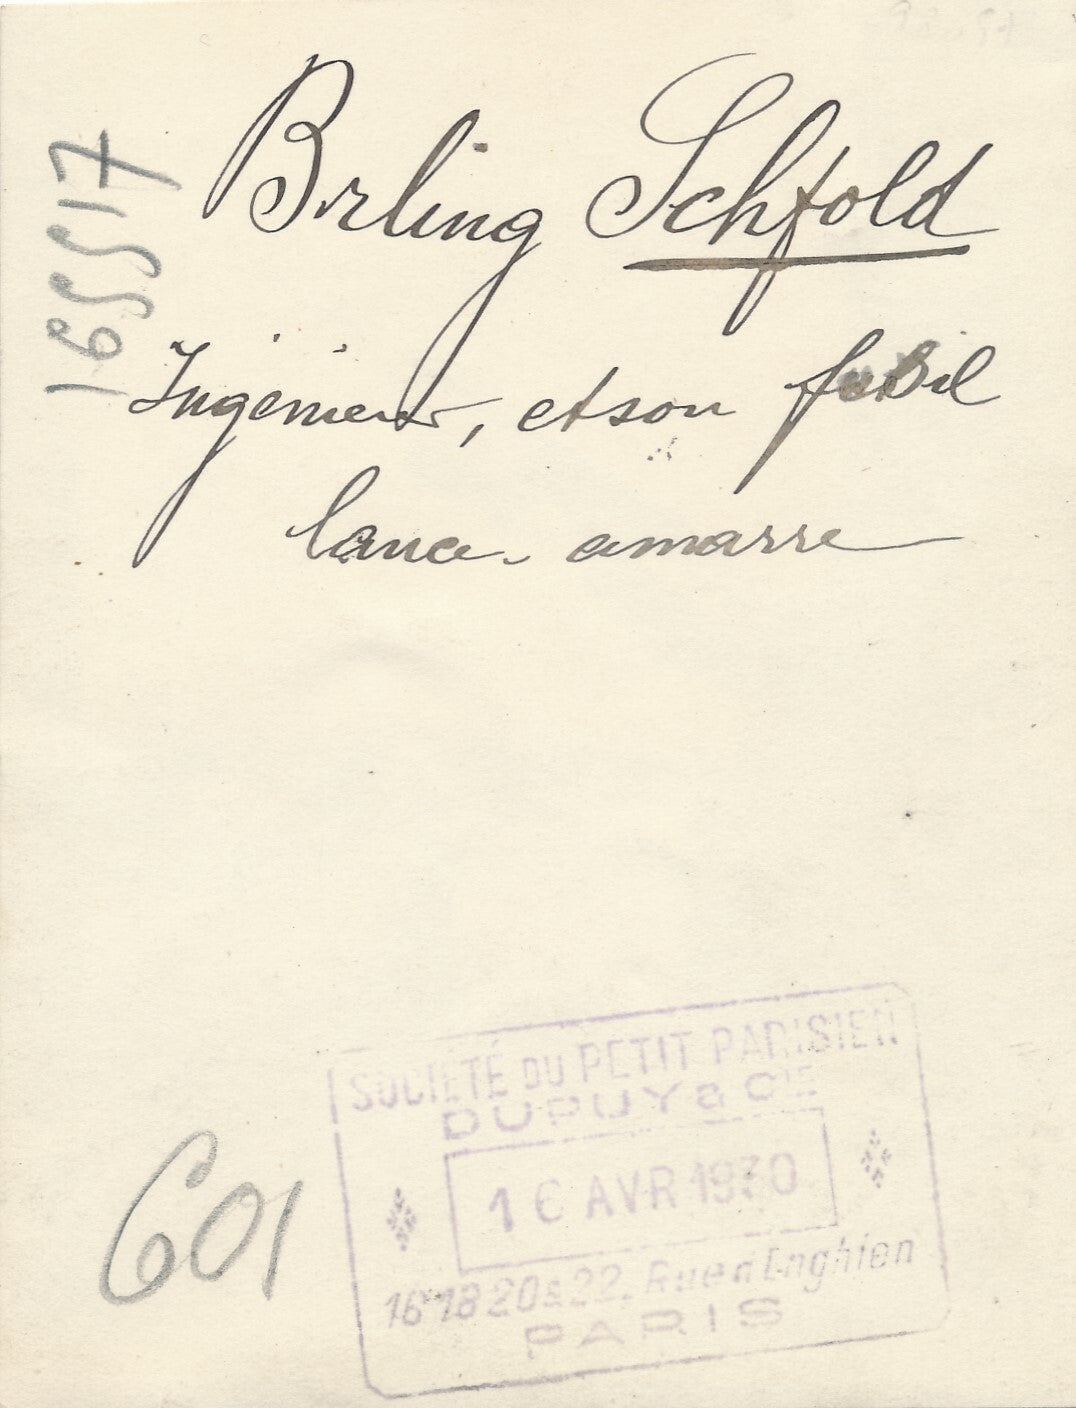 Brling Schfold
Ingénieur, et son fusil
lance-amarre
165517
SOCIÉTÉ DU PETIT PARISIEN
DUPUY & CIE
16 AVR 1930
16 18 20 & 22, Rue d'Enghien
PARIS
601